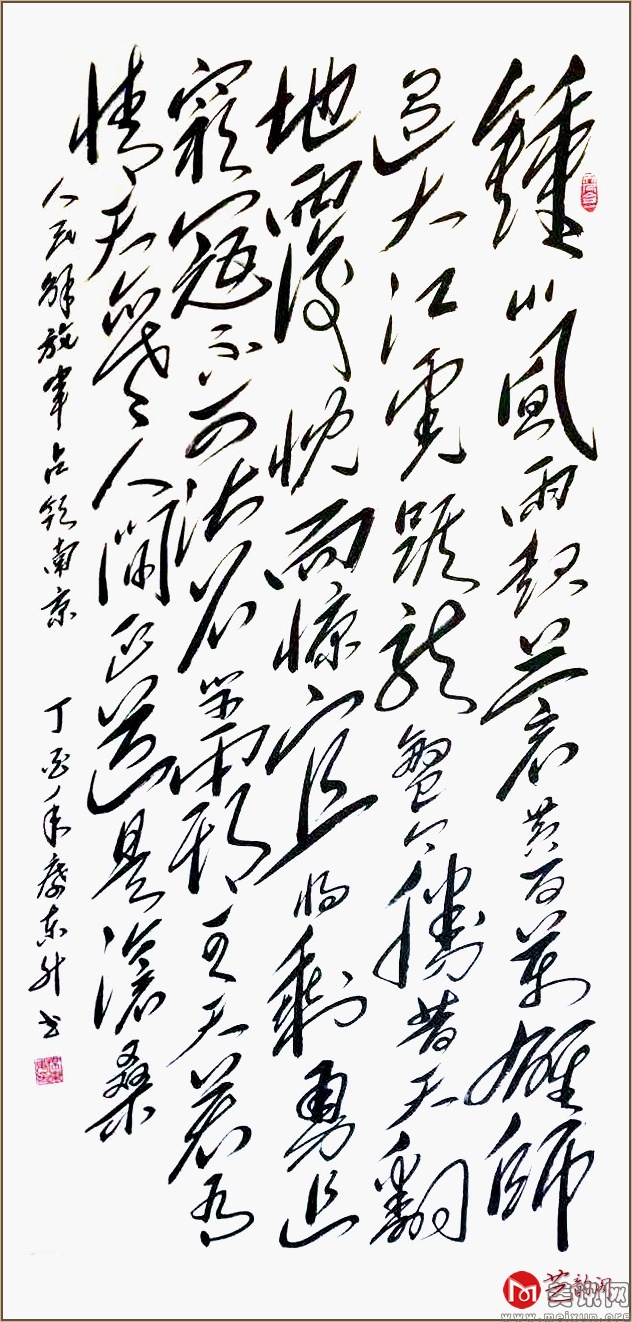 鍾山風雨起蒼黄百萬雄師
過大江虎踞龍盤今勝昔天翻
地覆慨而慷宜将剩勇追
窮寇不可沽名学霸王天若有
情天亦老人间正道是滄桑
人民解放軍占领南京 丁酉年廖东升书
美讯网
www.meixun.org